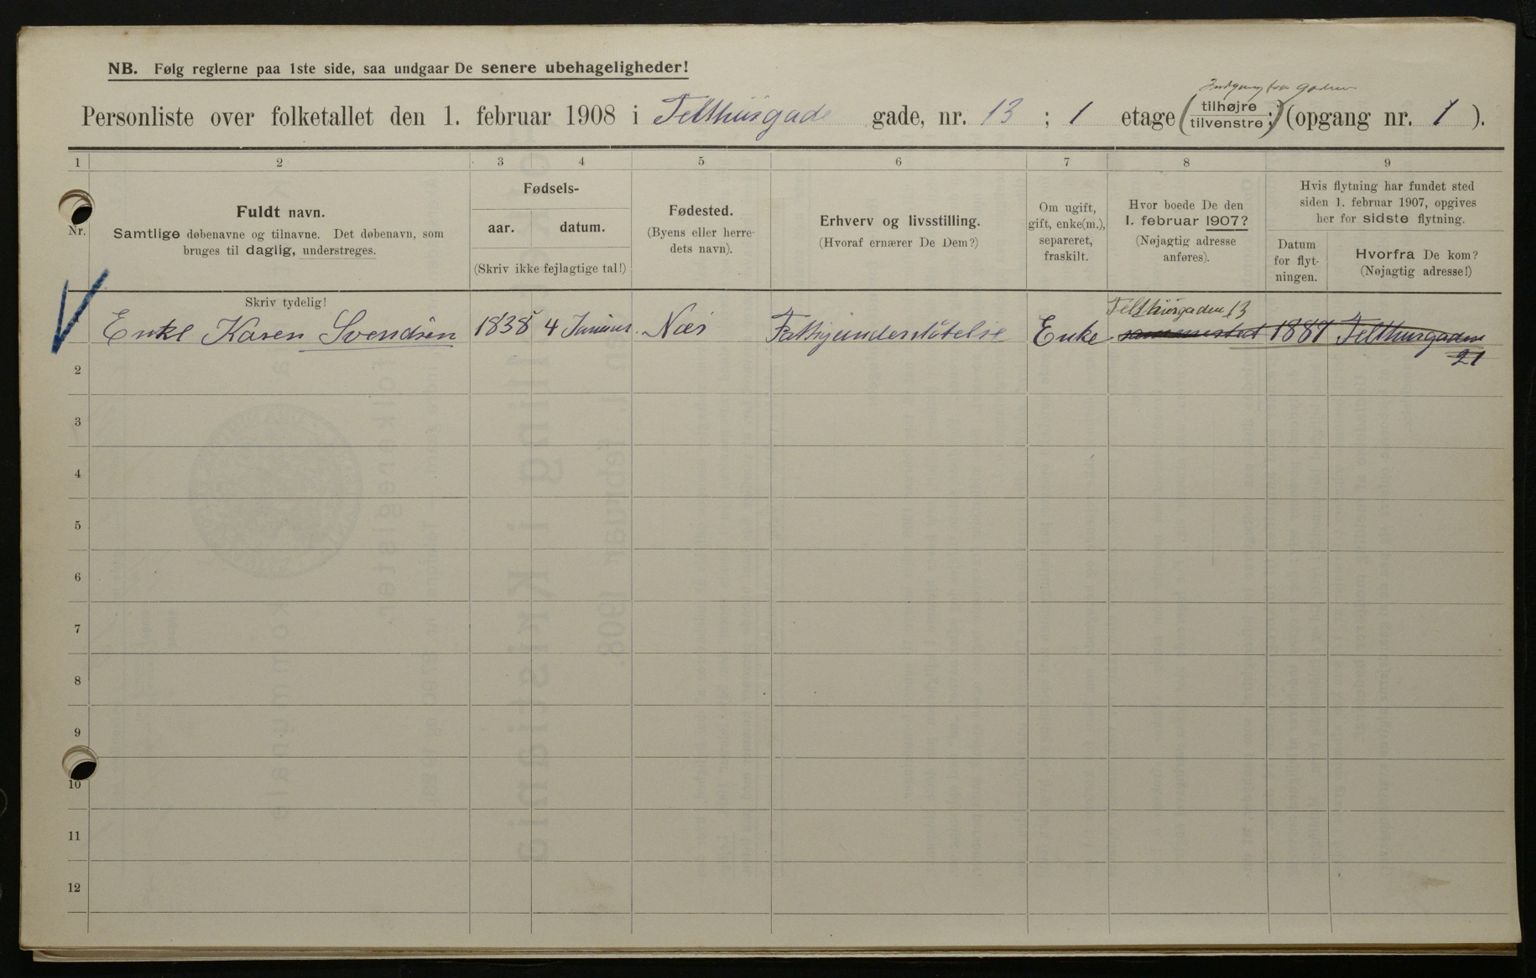 NB. Følg reglerne paa 1ste side, saa undgaar De senere ubehageligheder!
Indgang fra gaden
Personliste over folketallet den 1. februar 1908 i Felthusgade gade, nr. 13 ; 1 etage (tilhøjre tilvenstre;) (opgang nr. 1 ).
1 2 3 4 5 6 7 8 9
Nr.
Fuldt navn.
Samtlige døbenavne og tilnavne. Det døbenavn, som
bruges til daglig, understreges.
Skriv tydelig!
Fødsels-
aar. datum.
(Skriv ikke fejlagtige tal!)
Fødested.
(Byens eller herre-
dets navn).
Erhverv og livsstilling.
(Hvoraf ernærer De Dem?)
Om ugift,
gift, enke(m.),
separeret,
fraskilt.
Hvor boede De den
1. februar 1907?
(Nøjagtig adresse
anføres).
Hvis flytning har fundet sted
siden 1. februar 1907, opgives
her for sidste flytning.
Datum
for flyt-
ningen.
Hvorfra De kom?
(Nøjagtig adresse!)
Felthusgaden 13
Enke Karen Svendsen 1838 4 Junius. Næs Fattigunderstøtelse Enke sammested 1887 Felthusgaden
21
2
3
4
5
6
7
8
9
10
11
12